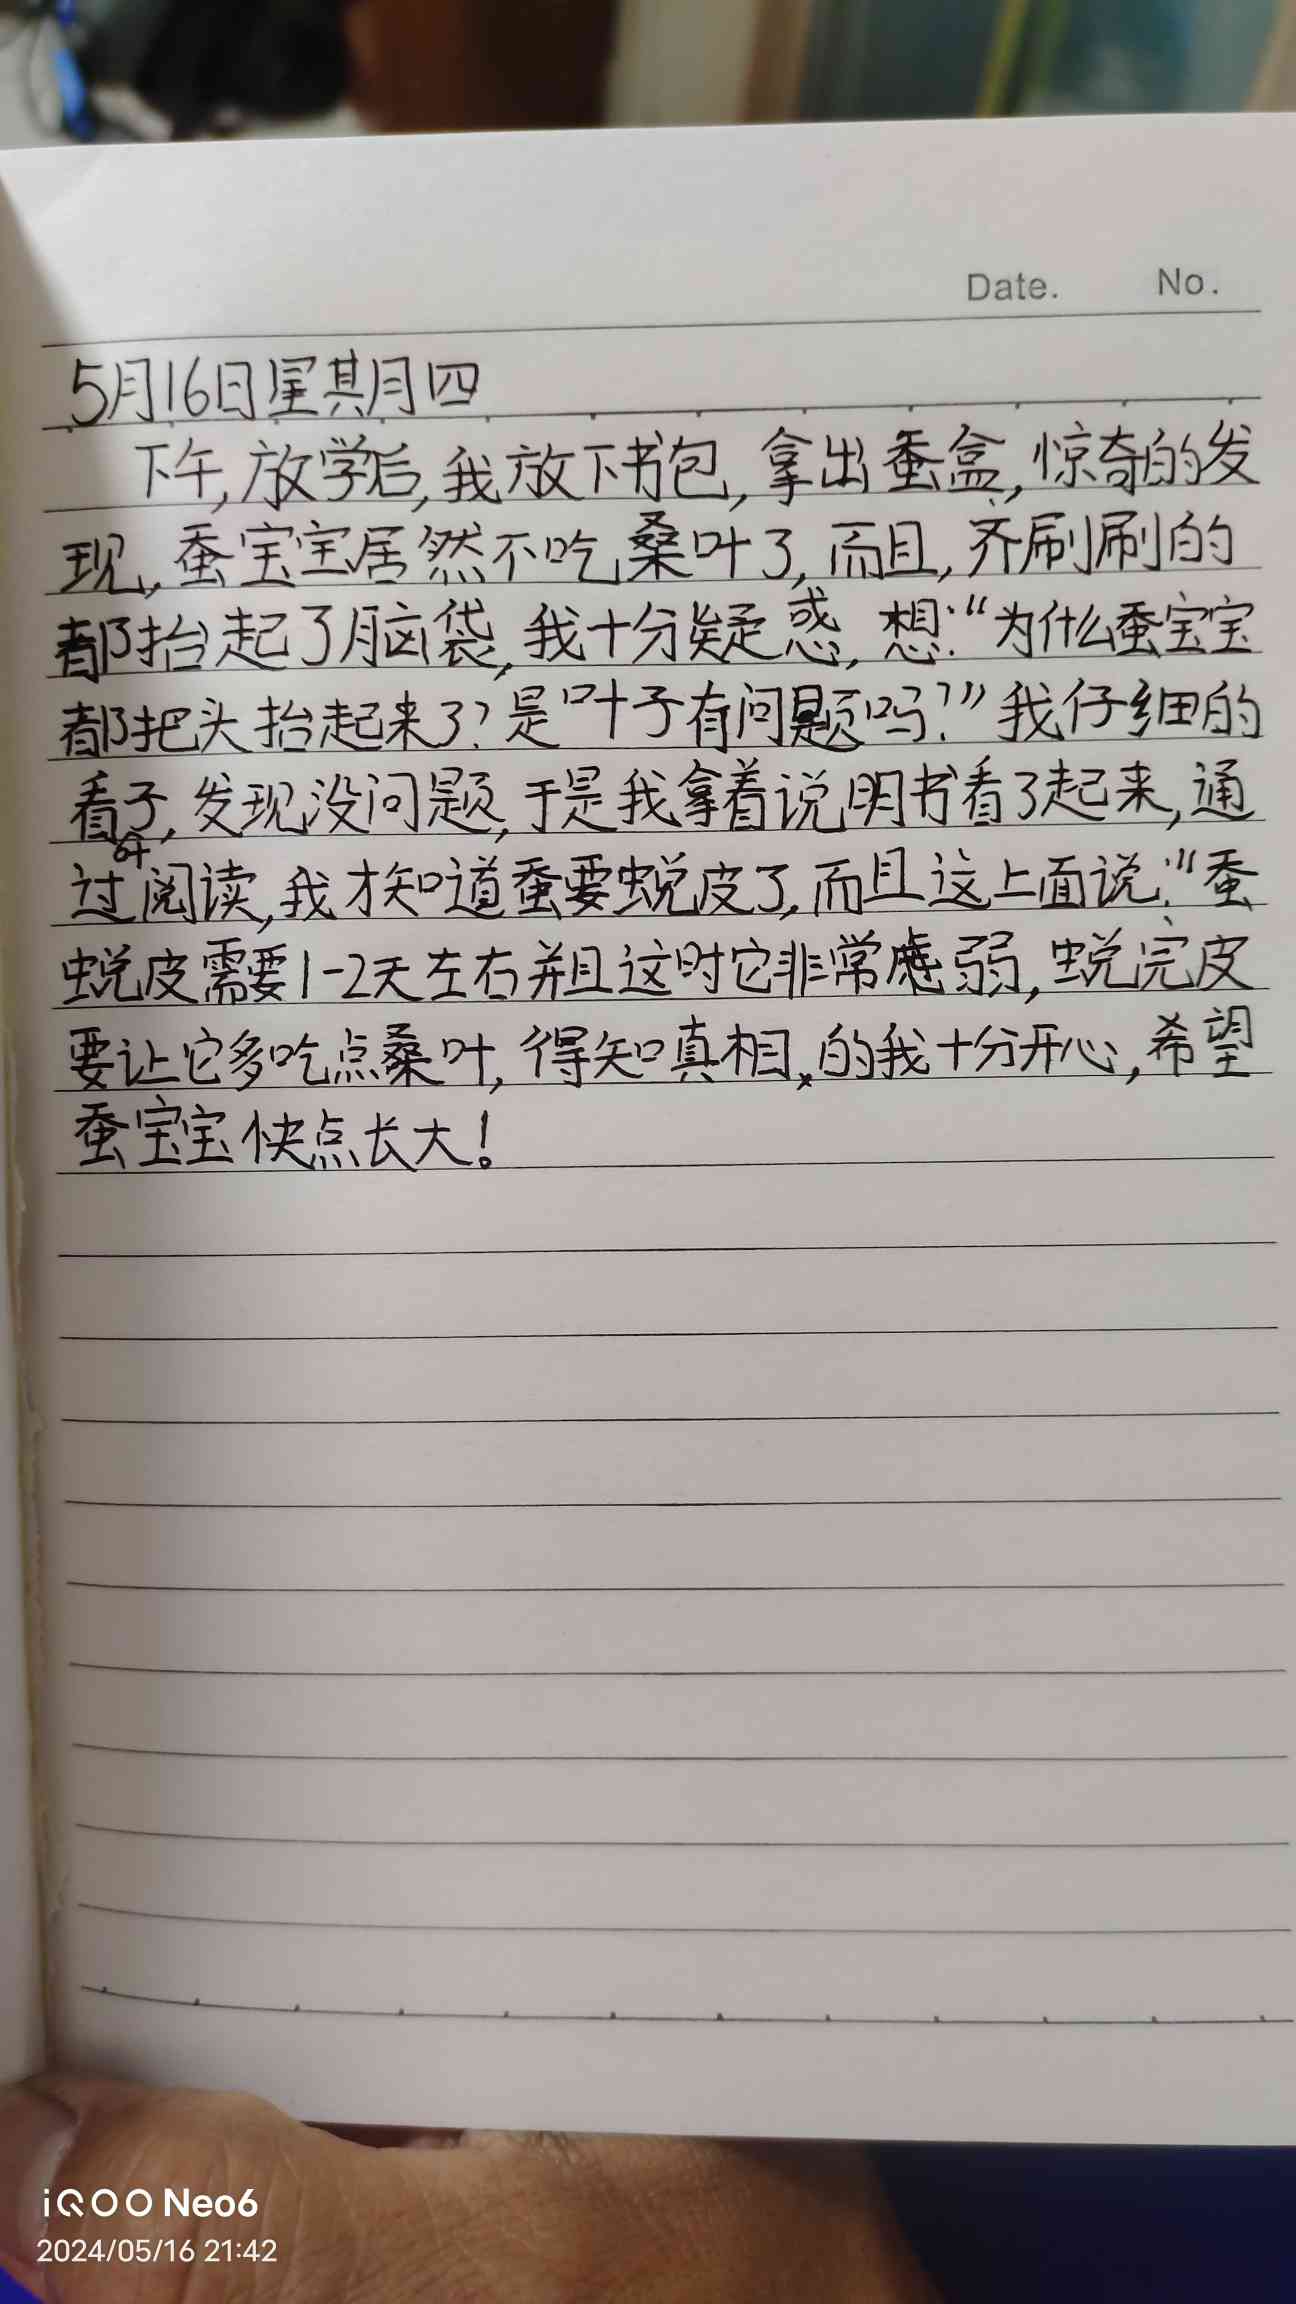 Date. No.
5月16日星其月四
下午,放学后,我放下书包,拿出蚕盒,惊奇的发
现,蚕宝宝居然不吃桑叶了,而且,齐刷刷的
都抬起了脑袋,我十分疑惑,想:“为什么蚕宝宝
都把头抬起来了?是叶子有问题吗?”我仔细的
看了,发现没问题,于是我拿着说明书看了起来,通
过阅读,我才知道蚕要蜕皮了,而且这上面说:“蚕
蜕皮需要1-2天左右并且这时它非常虚弱,蜕完皮
要让它多吃点桑叶,得知真相,的我十分开心,希望
蚕宝宝快点长大!
iQOO Neo6
2024/05/16 21:42